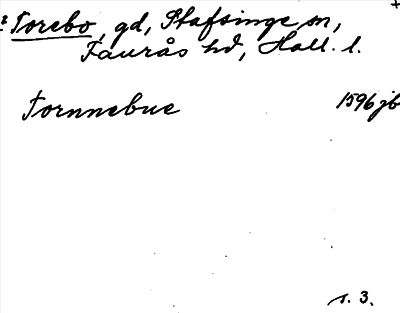 Torebo, gd, Stafsinge sn,
Faurås hd, Hall. l.
Tornnebue 1596 jb
s. 3.